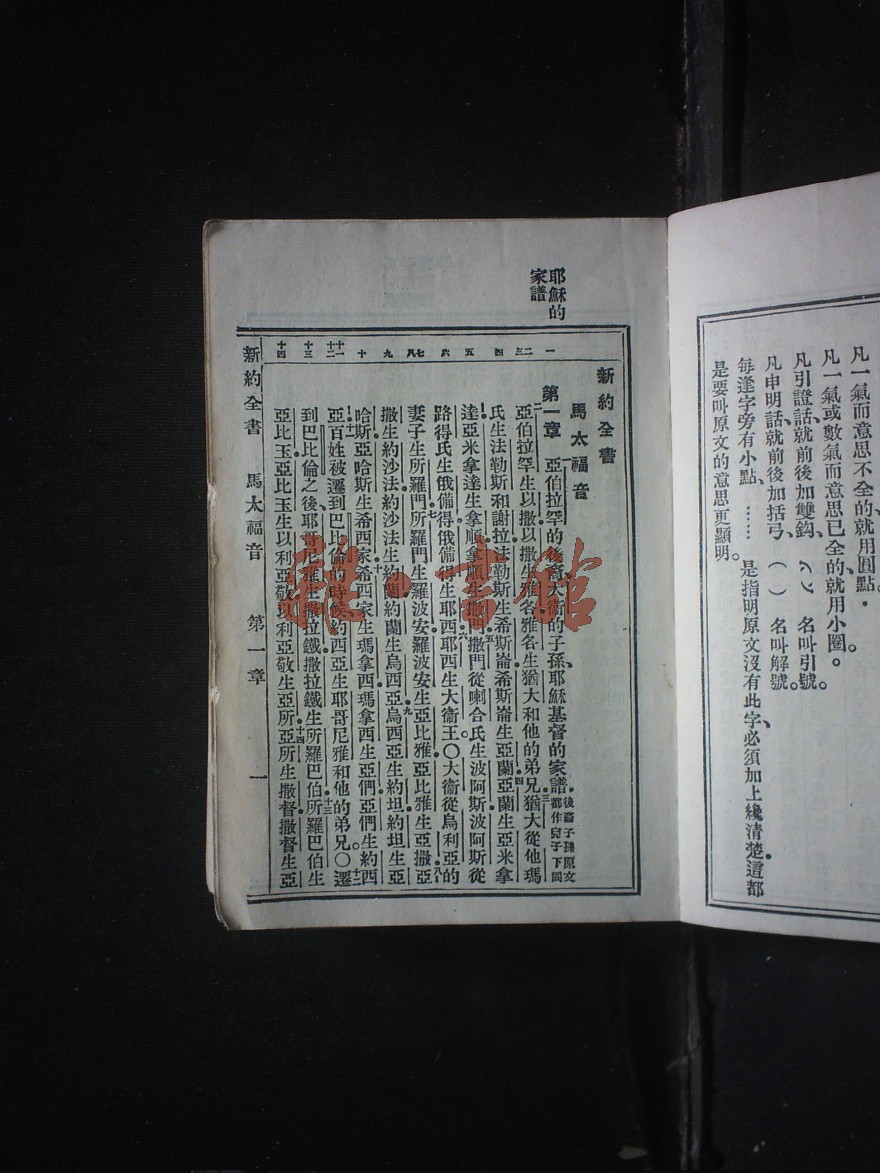 凡一氣而意思不全的、就用圓點．
凡一氣或數氣而意思已全的、就用小圈。
凡引證話、就前後加雙鈎、名叫引號。
凡申明話、就前後加括弓、（ ）名叫解號。
每逢字旁有小點、……是指明原文沒有此字、必須加上纔清楚．這都
是要叫原文的意思更顯明。
耶穌的
家譜
新約全書
馬太福音
第一章 一亞伯拉罕的後裔、大衛的子孫、耶穌基督的家譜．後裔子孫原文都作兒子下同
亞伯拉罕生以撒．以撒生雅各．雅各生猶大和他的弟兄．猶大從他瑪
氏生法勒斯和謝拉．法勒斯生希斯崙．希斯崙生亞蘭．亞蘭生亞米拿
達．亞米拿達生拿順．拿順生撒門．撒門從喇合氏生波阿斯．波阿斯從
路得氏生俄備得．俄備得生耶西．耶西生大衛王。〇大衛從烏利亞的
妻子生所羅門．所羅門生羅波安．羅波安生亞比雅．亞比雅生亞撒．亞
撒生約沙法．約沙法生約蘭．約蘭生烏西亞．烏西亞生約坦．約坦生亞
哈斯．亞哈斯生希西家．希西家生瑪拿西．瑪拿西生亞們．亞們生約西
亞．百姓被遷到巴比倫的時候、約西亞生耶哥尼雅和他的弟兄。〇遷
到巴比倫之後、耶哥尼雅生撒拉鐵．撒拉鐵生所羅巴伯．所羅巴伯生
亞比玉．亞比玉生以利亞敬．以利亞敬生亞所．亞所生撒督．撒督生亞
新約全書 馬太福音 第一章 一
雜·書館